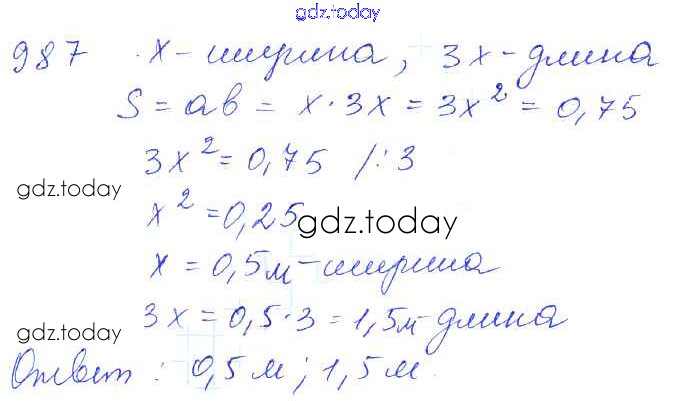 gdz.today
987 x - ширина, 3x - длина
S = ab = x · 3x = 3x² = 0,75
3x² = 0,75 /: 3
gdz.today
x² = 0,25
gdz.today
x = 0,5 м - ширина
3x = 0,5 · 3 = 1,5 м - длина
gdz.today
Ответ: 0,5 м; 1,5 м.